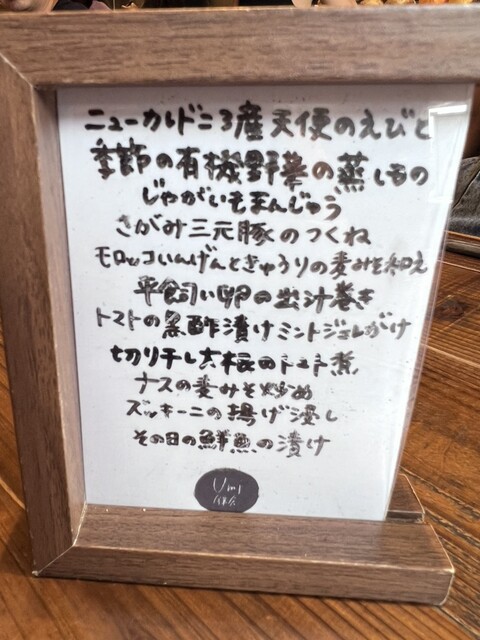 ニューカレドニア産天使のえびと
季節の有機野菜の蒸しもの
じゃがいもまんじゅう
さがみ三元豚のつくね
モロッコいんげんときゅうりの麦みそ和え
平飼い卵の出汁巻き
トマトの黒酢漬けミントジュレがけ
切り干し大根のトマト煮
ナスの麦みそ炒め
ズッキーニの揚げ浸し
その日の鮮魚の漬け
Umi